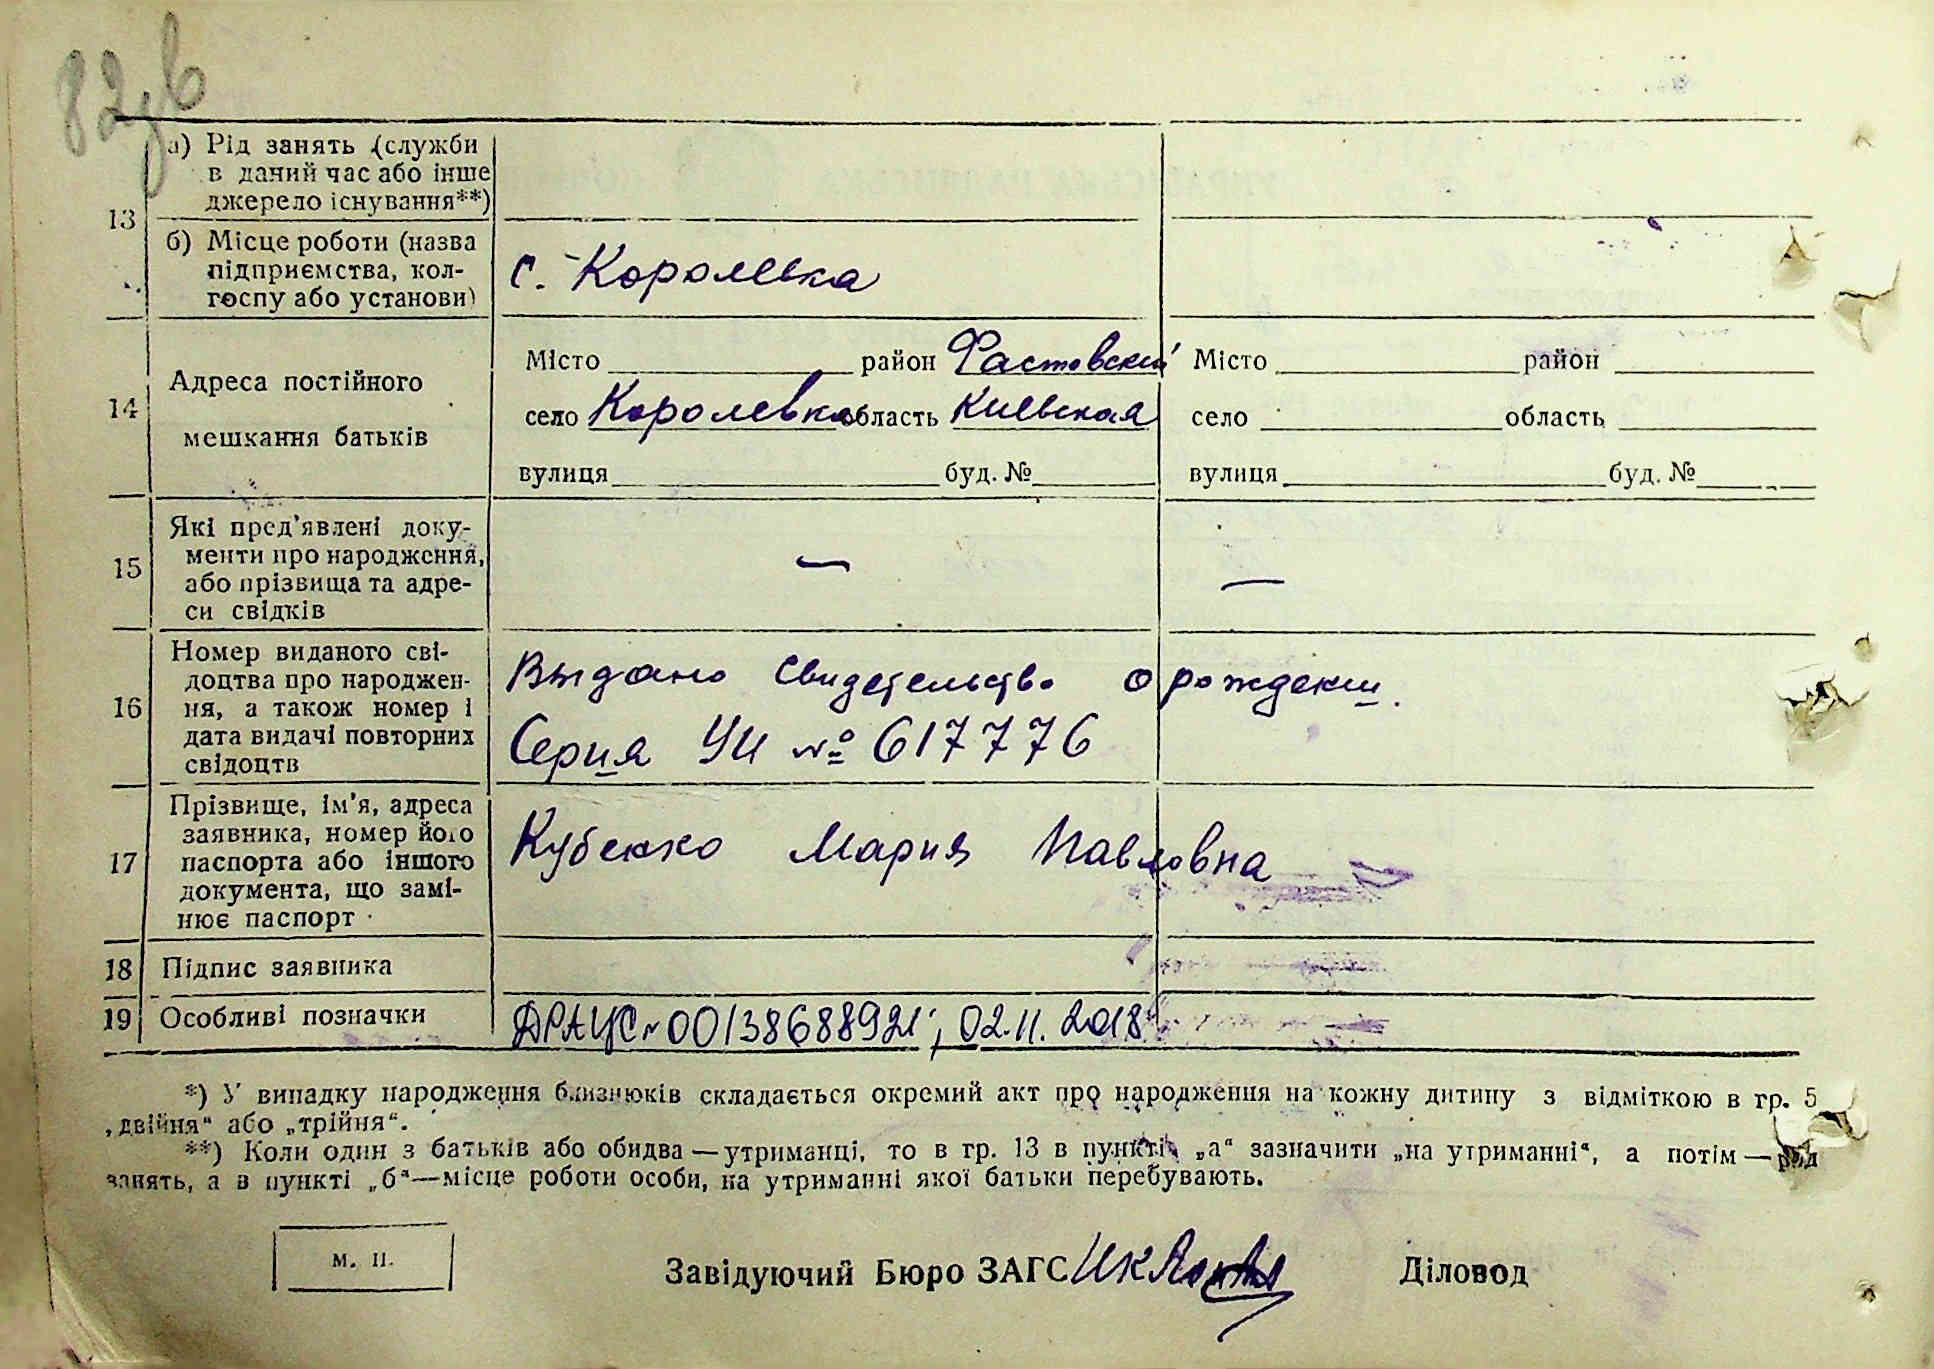 82зв
13
а) Рід занять (служби
в даний час або інше
джерело існування**)
б) Місце роботи (назва
підприємства, кол-
госпу або установи)
с. Королевка
14
Адреса постійного
мешкання батьків
Місто район Фастовский
село Королевка область Киевская
вулиця буд. №
Місто район
село область
вулиця буд. №
15
Які пред'явлені доку-
менти про народження,
або прізвища та адре-
си свідків
—
—
16
Номер виданого сві-
доцтва про народжен-
ня, а також номер і
дата видачі повторних
свідоцтв
Выдано свидетельство о рождении.
Серия УИ № 617776
17
Прізвище, ім'я, адреса
заявника, номер його
паспорта або іншого
документа, що замі-
нює паспорт
Кубенко Мария Павловна
18
Підпис заявника
19
Особливі позначки
ДРАЦС № 00138688921; 02.11.2018
*) У випадку народження близнюків складається окремий акт про народження на кожну дитину з відміткою в гр. 5
„двійня“ або „трійня“.
**) Коли один з батьків або обидва — утриманці, то в гр. 13 в пункті „а“ зазначити „на утриманні“, а потім — рід
занять, а в пункті „б“ — місце роботи особи, на утриманні якої батьки перебувають.
м. п.
Завідуючий Бюро ЗАГС
Діловод